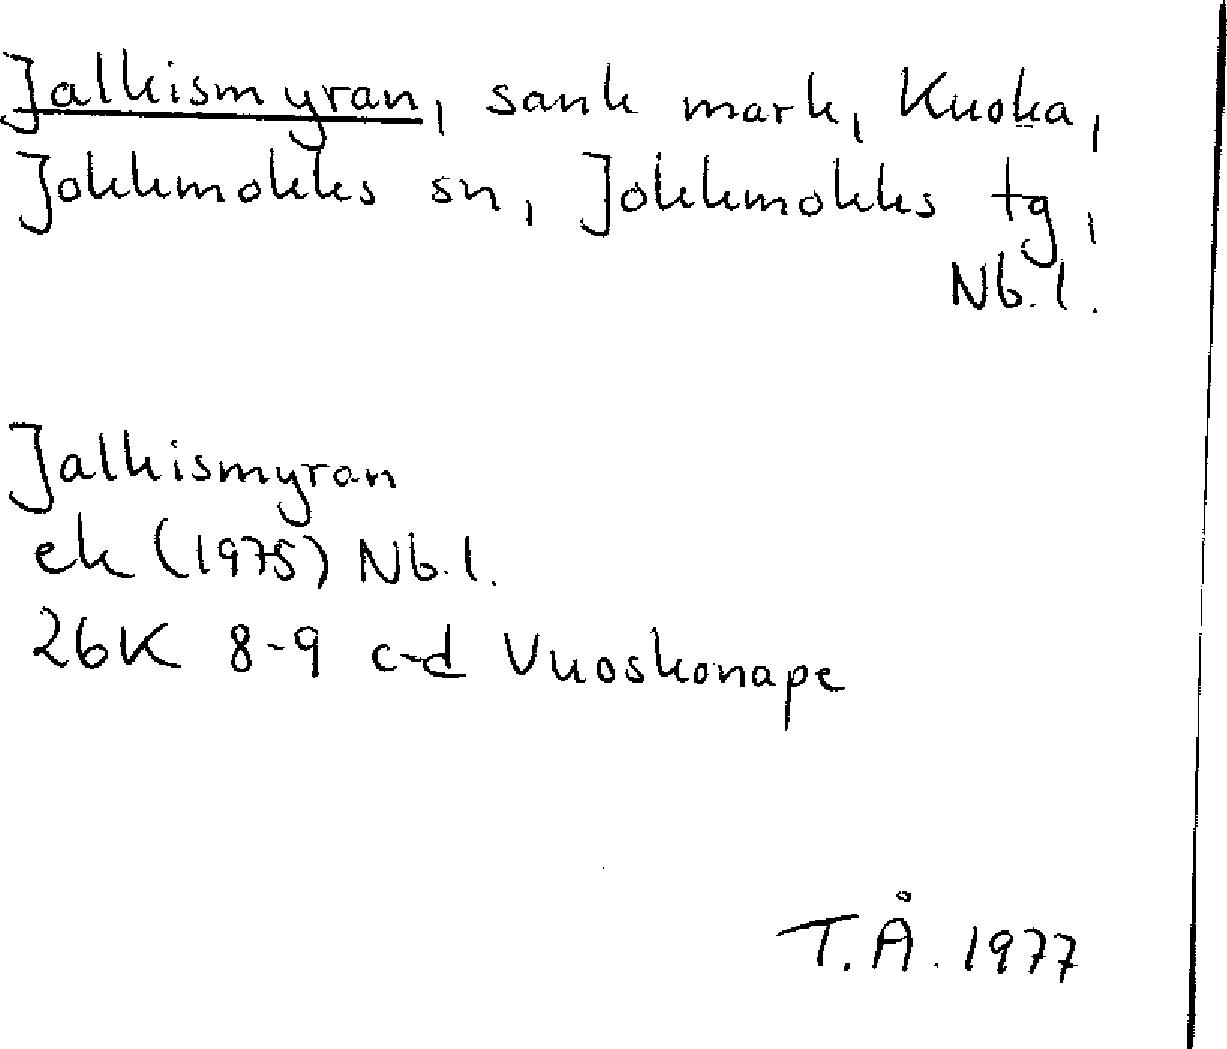 Jalkismyran, sank mark, Kuoka,
Jokkmokks sn, Jokkmokks tg,
Nb. l.
Jalkismyran
ek (1975) Nb. l.
26K 8-9 c-d Vuoskonape
T. Å. 1977